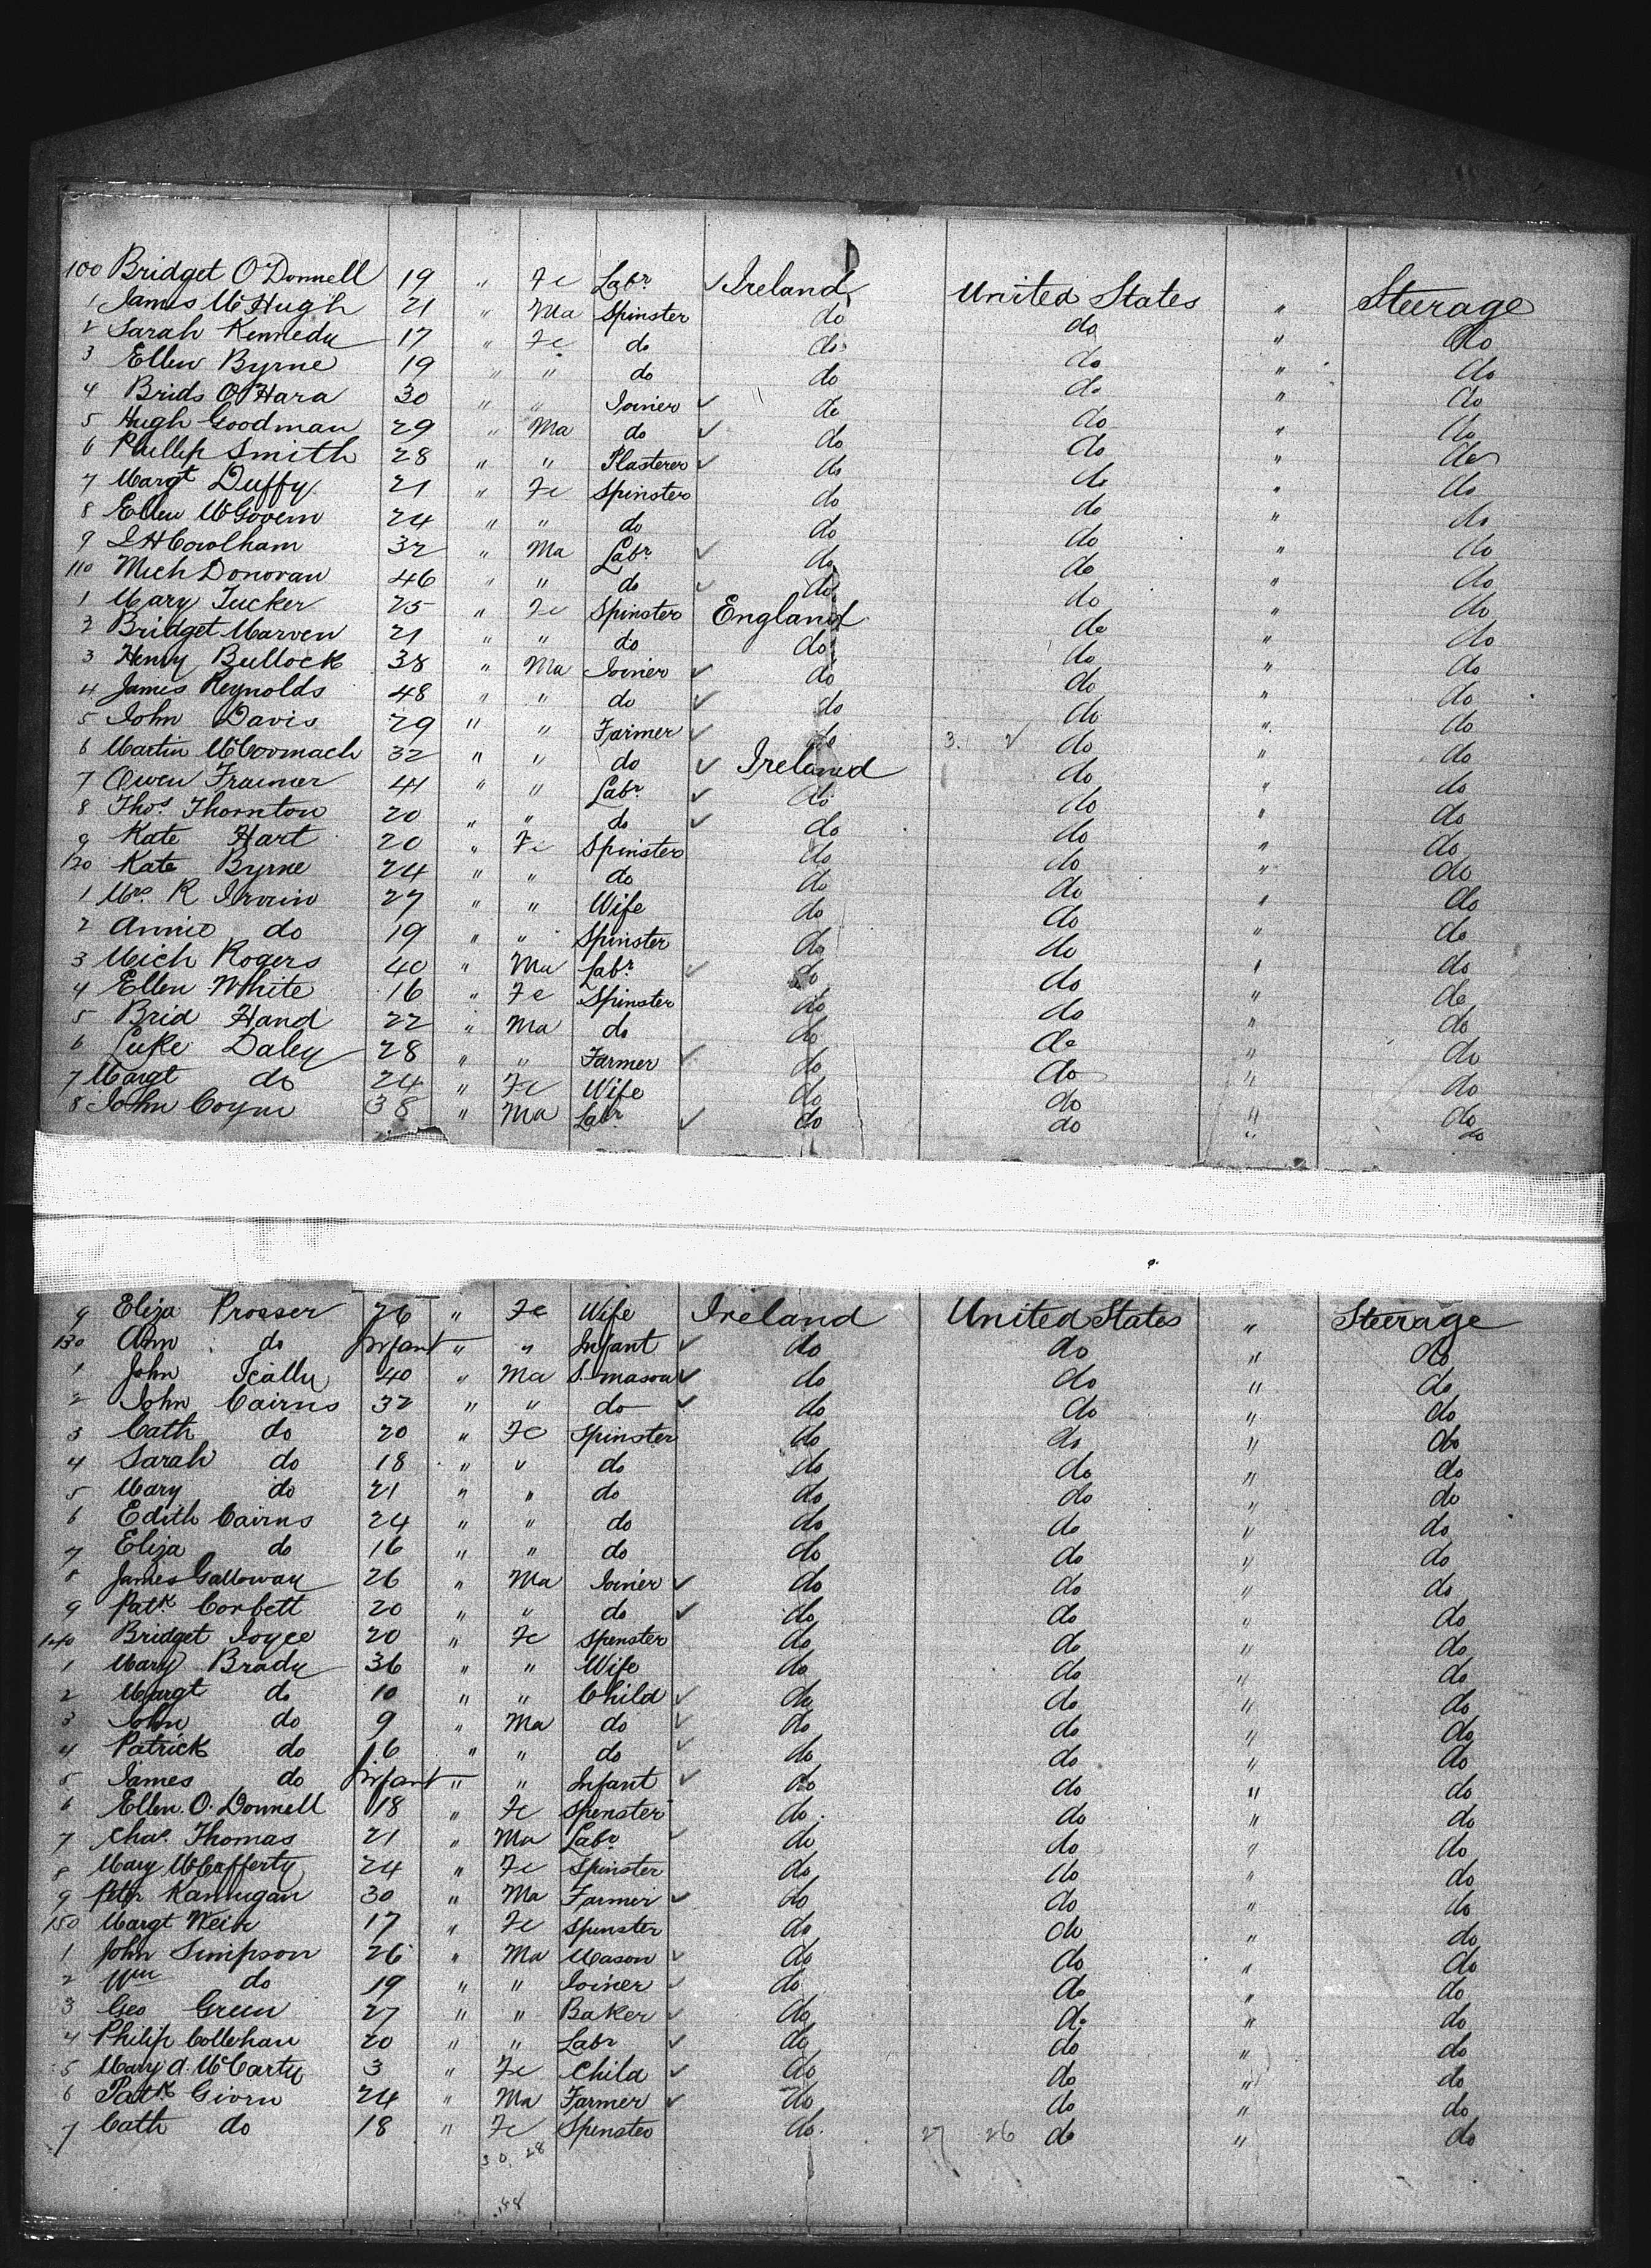 100 Bridget O'Donnell 19 " Fe Labr ✓ Ireland United States " Steerage
1 James McHugh 21 " Ma Spinster do do " do
2 Sarah Kennedy 17 " Fe do do do " do
3 Ellen Byrne 19 " " do do do " do
4 Brids O'Hara 30 " " Joiner ✓ do do " do
5 Hugh Goodman 29 " Ma do ✓ do do " do
6 Phillip Smith 28 " " Plasterer ✓ do do " do
7 Margt Duffy 21 " Fe Spinster do do " do
8 Ellen McGovern 24 " " do do do " do
9 32 " Ma Labr ✓ do do " do
110 Mich Donovan 46 " " do ✓ do do " do
1 Mary Tucker 25 " Fe Spinster England do " do
2 Bridget Marven 21 " " do do do " do
3 Henry Bullock 38 " Ma Joiner ✓ do do " do
4 James Reynolds 48 " " do ✓ do do " do
5 John Davis 29 " " Farmer ✓ do do " do
6 Martin McCormach 32 " " do ✓ Ireland do " do
7 Owen Frainer 41 " " Labr ✓ do do " do
8 Thos Thornton 20 " " do ✓ do do " do
9 Kate Hart 20 " Fe Spinster do do " do
120 Kate Byrne 24 " " do do do " do
1 Mrs R Irwin 27 " " Wife do do " do
2 Annie do 19 " " Spinster do do " do
3 Mich Rogers 40 " Ma Labr ✓ do do " do
4 Ellen White 16 " Fe Spinster do do " do
5 Brid Hand 22 " Ma do do do " do
6 Luke Daley 28 " " Farmer ✓ do do " do
7 Margt do 24 " Fe Wife do do " do
8 John Coyne 38 " Ma Labr ✓ do do " do
9 Eliza Prosser 26 " Fe Wife Ireland United States " Steerage
130 Ann do Infant " " Infant ✓ do do " do
1 John Scally 40 " Ma S. mason ✓ do do " do
2 John Cairns 32 " " do ✓ do do " do
3 Cath do 20 " Fe Spinster do do " do
4 Sarah do 18 " " do do do " do
5 Mary do 21 " " do do do " do
6 Edith Cairns 24 " " do do do " do
7 Eliza do 16 " " do do do " do
8 James Galloway 26 " Ma Joiner ✓ do do " do
9 Patk Corbett 20 " " do ✓ do do " do
140 Bridget Joyce 20 " Fe Spenster do do " do
1 Mary Brady 36 " " Wife do do " do
2 Margt do 10 " " Child ✓ do do " do
3 John do 9 " Ma do ✓ do do " do
4 Patrick do 6 " " do ✓ do do " do
5 James do Infant " " Infant ✓ do do " do
6 Ellen O. Donnell 18 " Fe Spenster do do " do
7 Chas Thomas 21 " Ma Labr ✓ do do " do
8 Mary McCafferty 24 " Fe Spinster do do " do
9 Peter Kannigan 30 " Ma Farmer ✓ do do " do
150 Margt Weir 17 " Fe Spinster do do " do
1 John Simpson 26 " Ma Mason ✓ do do " do
2 Wm do 19 " " Joiner ✓ do do " do
3 Geo Green 27 " " Baker ✓ do do " do
4 Philip Collehan 20 " " Labr ✓ do do " do
5 Mary A. McCarty 3 " Fe Child ✓ do do " do
6 Patk Givrn 24 " Ma Farmer ✓ do do " do
7 Cath do 18 " Fe Spenster do 27 26 do " do
30. 28